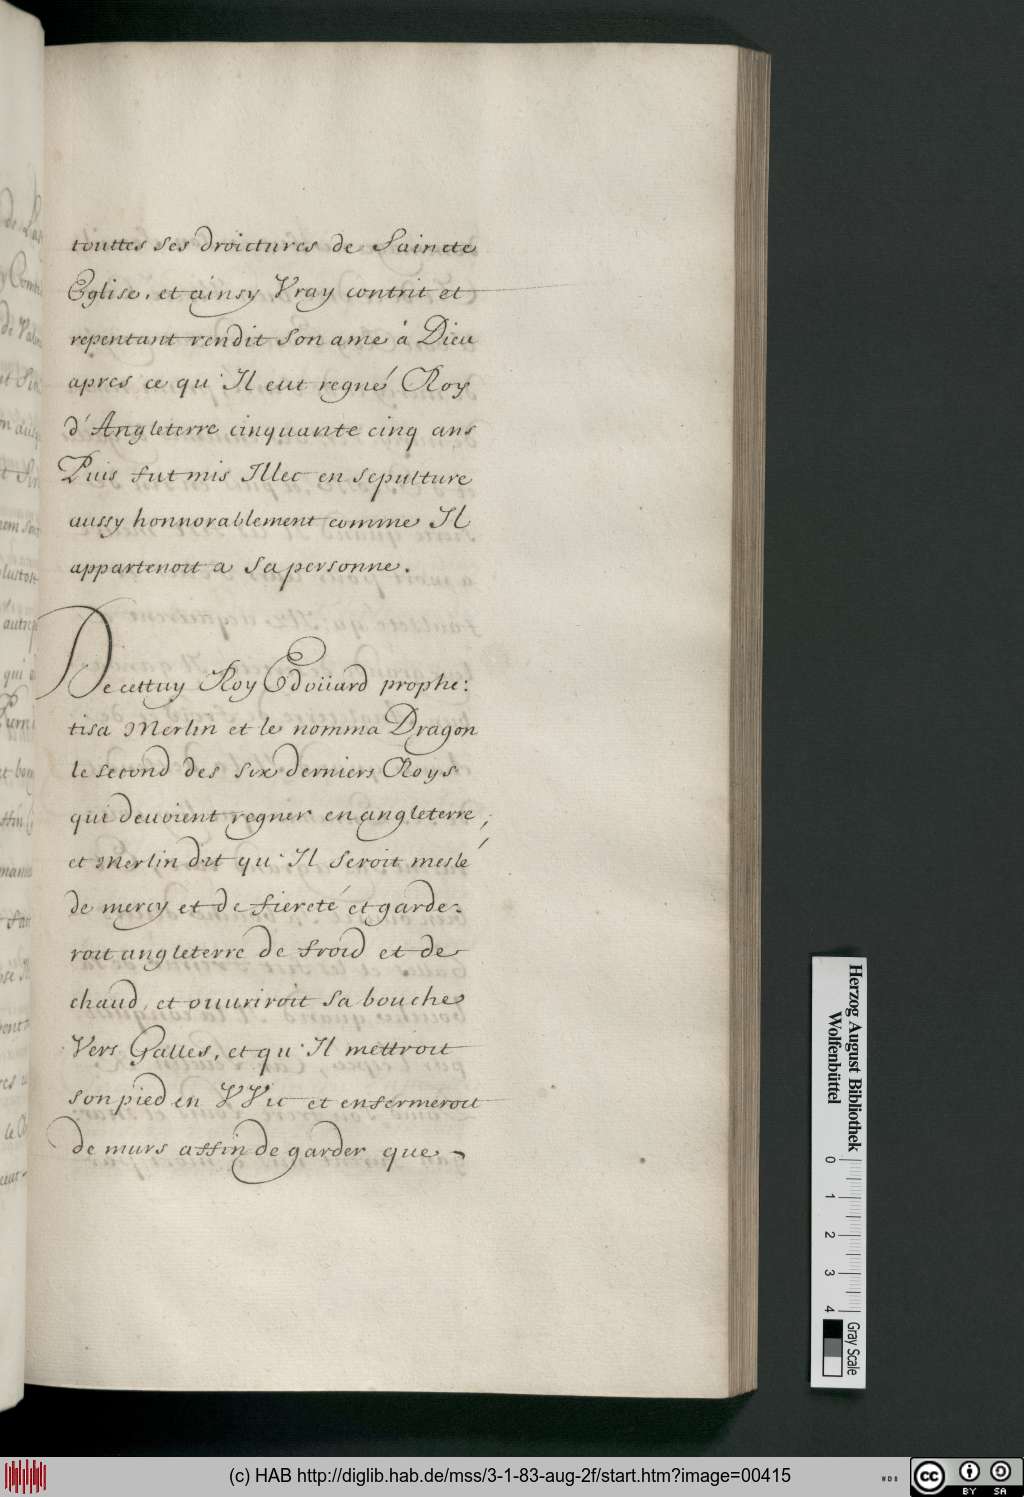 touttes ses droictures de Saincte
Eglise, et ainsy Vray contrit et
repentant rendit son ame à Dieu
apres ce qu'Il eut regné Roy
d'Angleterre cinquante cinq ans
Puis fut mis Illec en sepulture
aussy honnorablement comme Il
appartenoit a sa personne.
De cettuy Roy Edoüard prophe:
tisa Merlin et le nomma Dragon
le second des six derniers Roys
qui deuoient regner en angleterre,
et Merlin dit qu'Il seroit meslé
de mercy et de fiereté et garde:
roit angleterre de froid et de
chaud, et ouuriroit sa bouche
Vers Galles, et qu'Il mettroit
son pied en VVic et enfermeroit
de murs affin de garder que
Herzog August Bibliothek
Wolfenbüttel
0 1 2 3 4
Gray Scale
(c) HAB http://diglib.hab.de/mss/3-1-83-aug-2f/start.htm?image=00415
cc BY SA